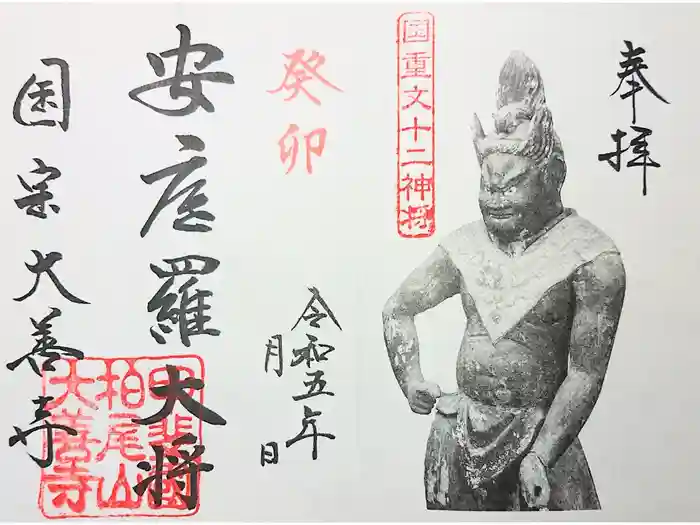 奉拝
国重文十二神将
癸卯
令和五年
月 日
安底羅大将
甲斐国
柏尾山
大善寺
国宝大善寺